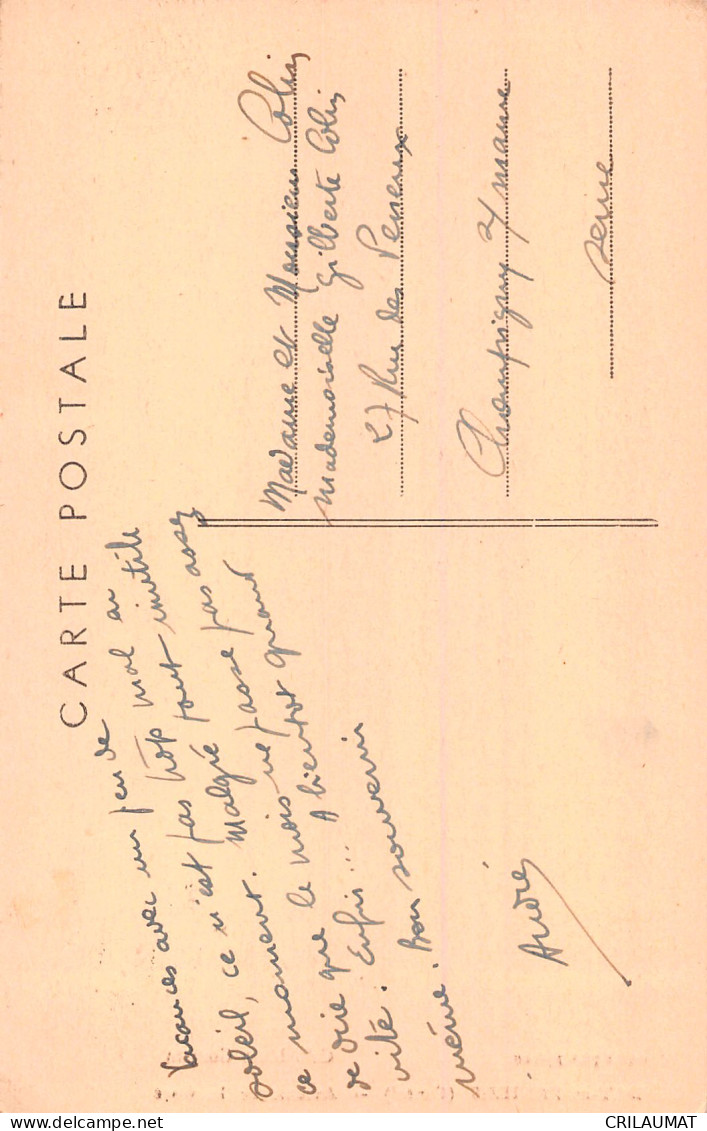 CARTE POSTALE
Vacances avec un peu de
soleil, ce n'est pas trop mal en
ce moment. Malgré tout inutile
de dire que le mois ne passe pas assez
vite. Enfin... A bientôt quand
même. Bon souvenir
André
Madame et Monsieur Colin
Mademoiselle Gilberte Colin
27 Rue des
Champigny s/ marne
Seine
CRILAUMAT